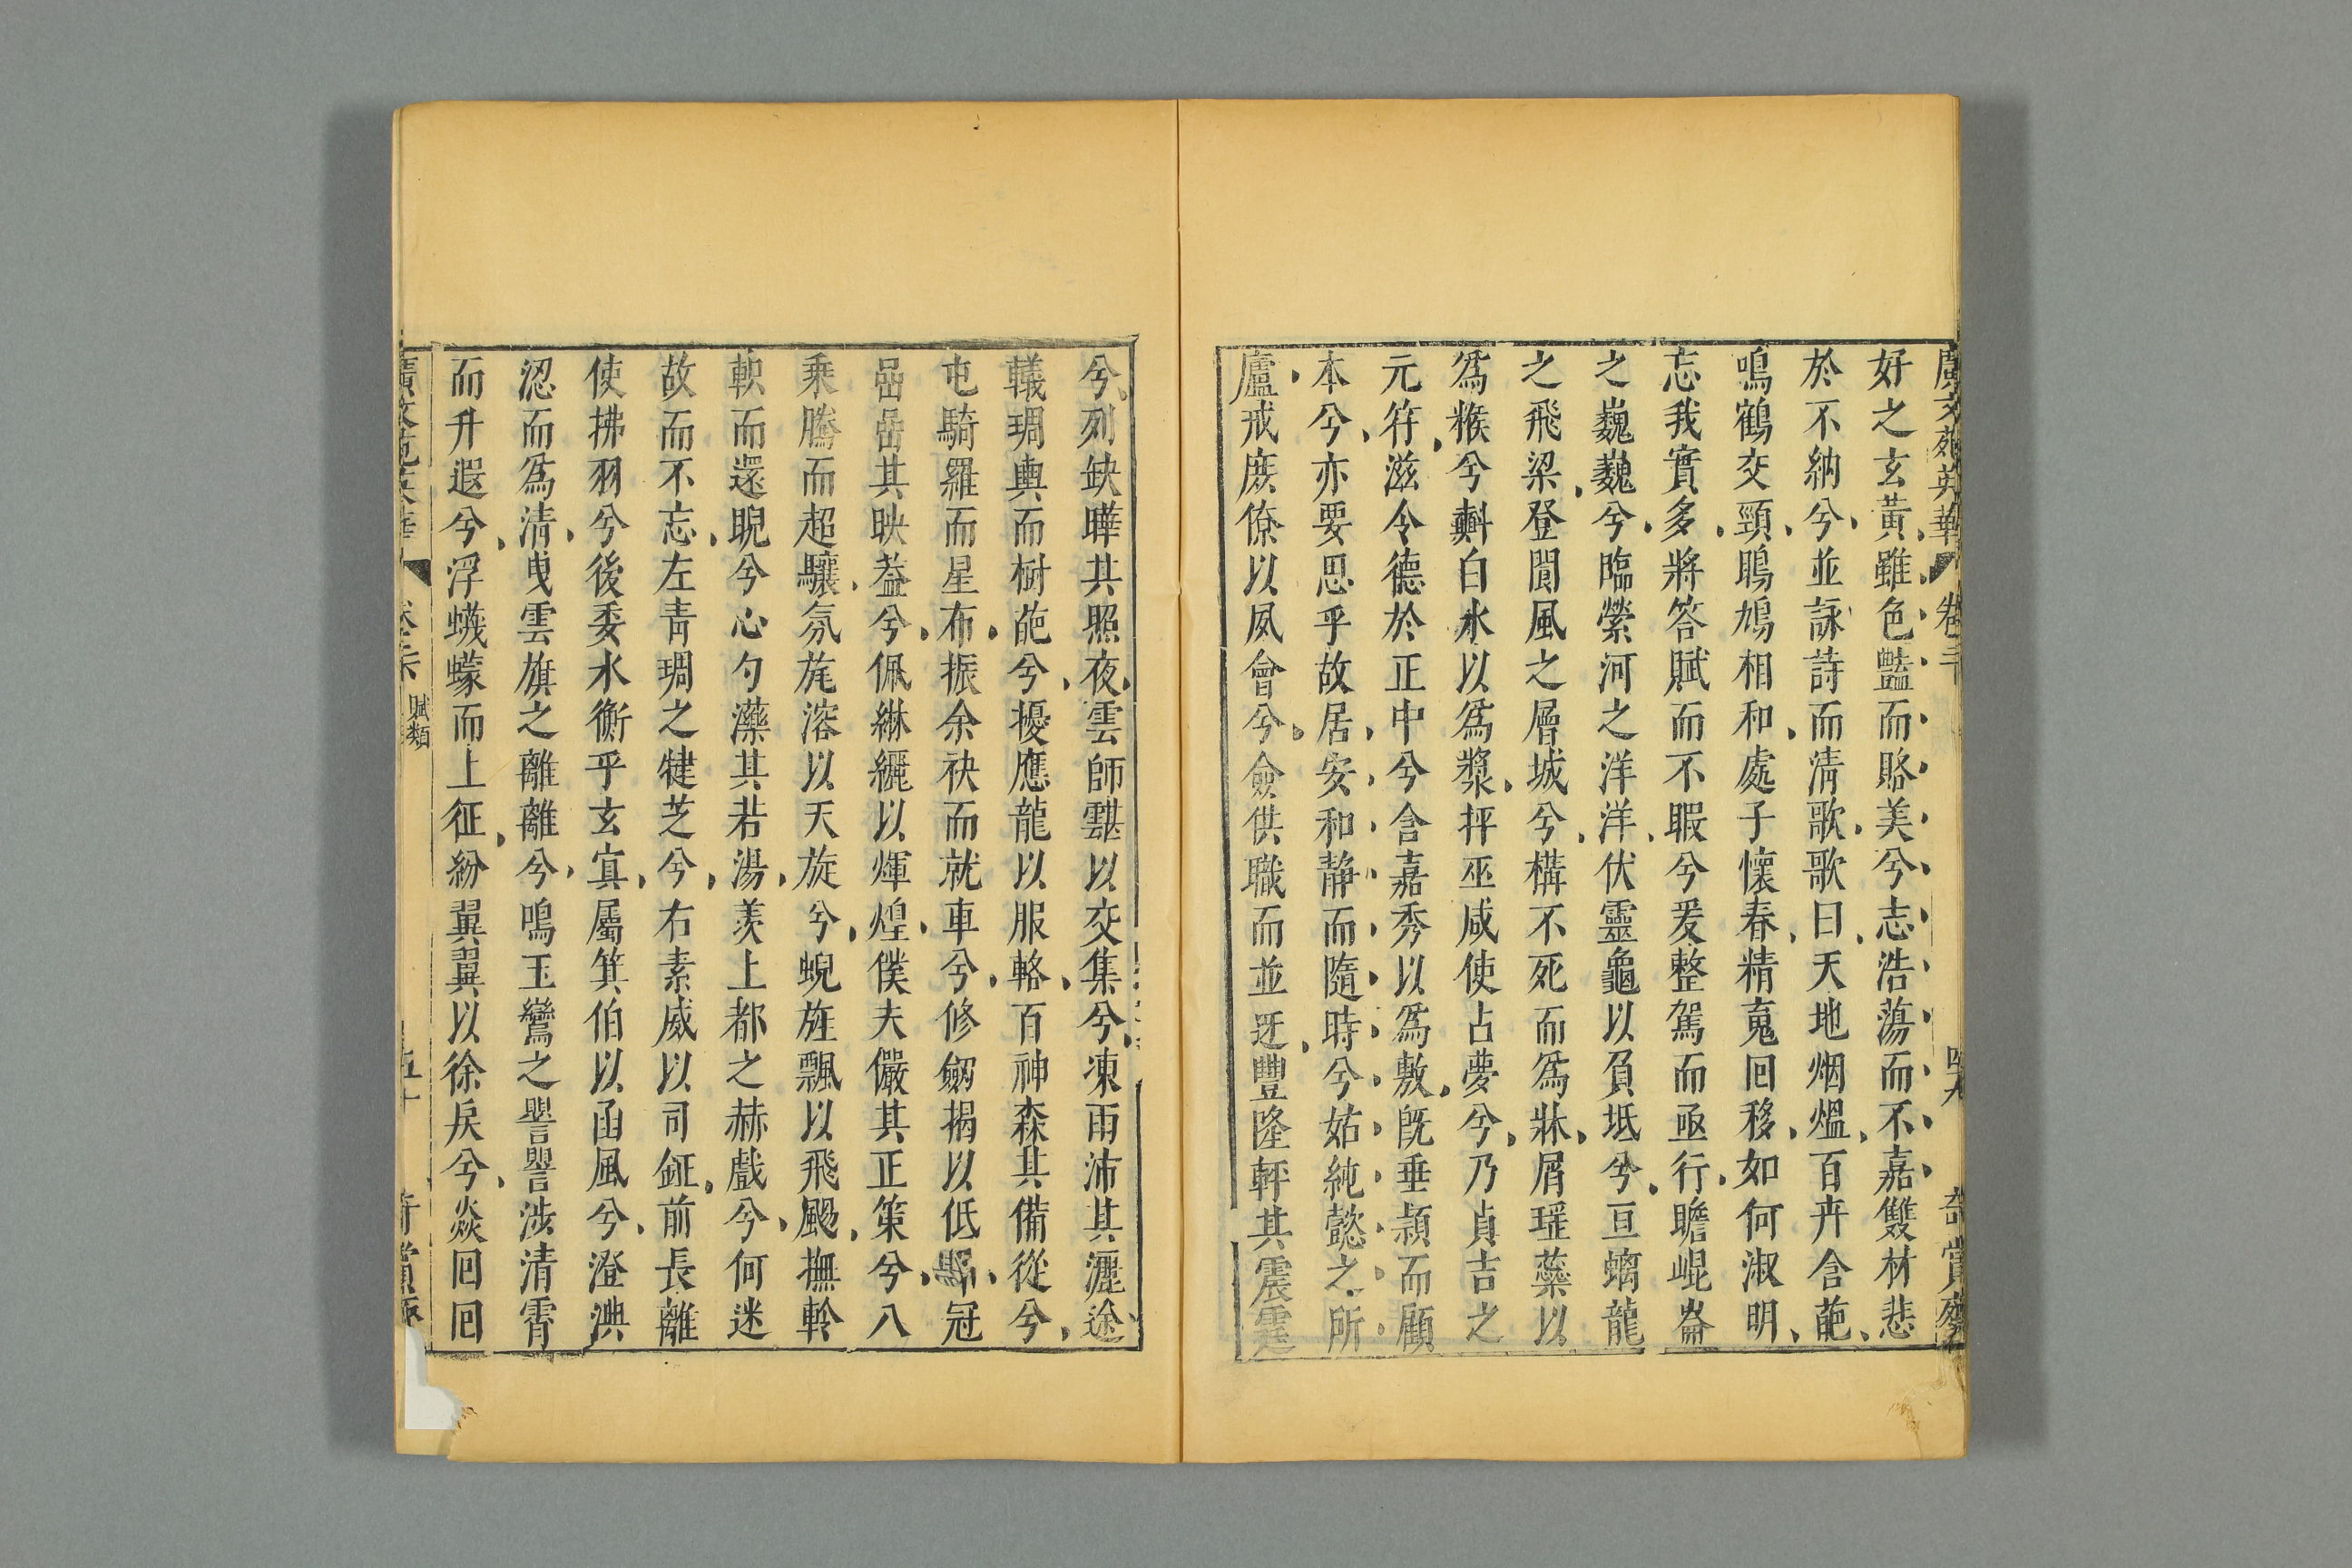 廣文苑英華 卷二十 四九 奇賞齋
好之玄黃雖色豔而賂美兮志浩蕩而不嘉雙材悲
於不納兮並詠詩而清歌歌曰天地烟熅百卉含葩
鳴鶴交頸鵙鳩相和處子懷春精䰟回移如何淑明
忘我實多將答賦而不暇兮爰整駕而亟行瞻崐崙
之巍巍兮臨縈河之洋洋伏靈龜以負坻兮亘螭龍
之飛梁登閬風之層城兮構不死而爲牀屑瑶蘂以
爲糇兮㪺白水以爲漿抨巫咸使占夢兮乃貞吉之
元符滋令德於正中兮含嘉秀以爲敷旣垂頴而顧
本兮亦要思乎故居安和静而隨時兮姑純懿之所
廬戒庶僚以夙會兮僉供職而並迓豐隆軯其震霆
兮列缺曄其照夜雲師䨴以交集兮凍雨沛其灑途
轙琱輿而樹葩兮擾應龍以服輅百神森其備從兮
屯騎羅而星布振余袂而就車兮修劒揭以低昂冠
嵒嵒其映葢兮佩綝纚以煇煌僕夫儼其正策兮八
乘騰而超驤氛旄溶以天旋兮蜺旌飄以飛颺撫軨
軹而還睨兮心勺藥其若湯羨上都之赫戲兮何迷
故而不忘左青琱之犍芝兮右素威以司鉦前長離
使拂羽兮後委水衡乎玄㝠屬箕伯以函風兮澄淟
涊而爲清曳雲旗之離離兮鳴玉鸞之譻譻涉清霄
而升遐兮浮蠛蠓而上征紛翼翼以徐戾兮焱回回
廣文苑英華 賦類 五十 奇賞齋